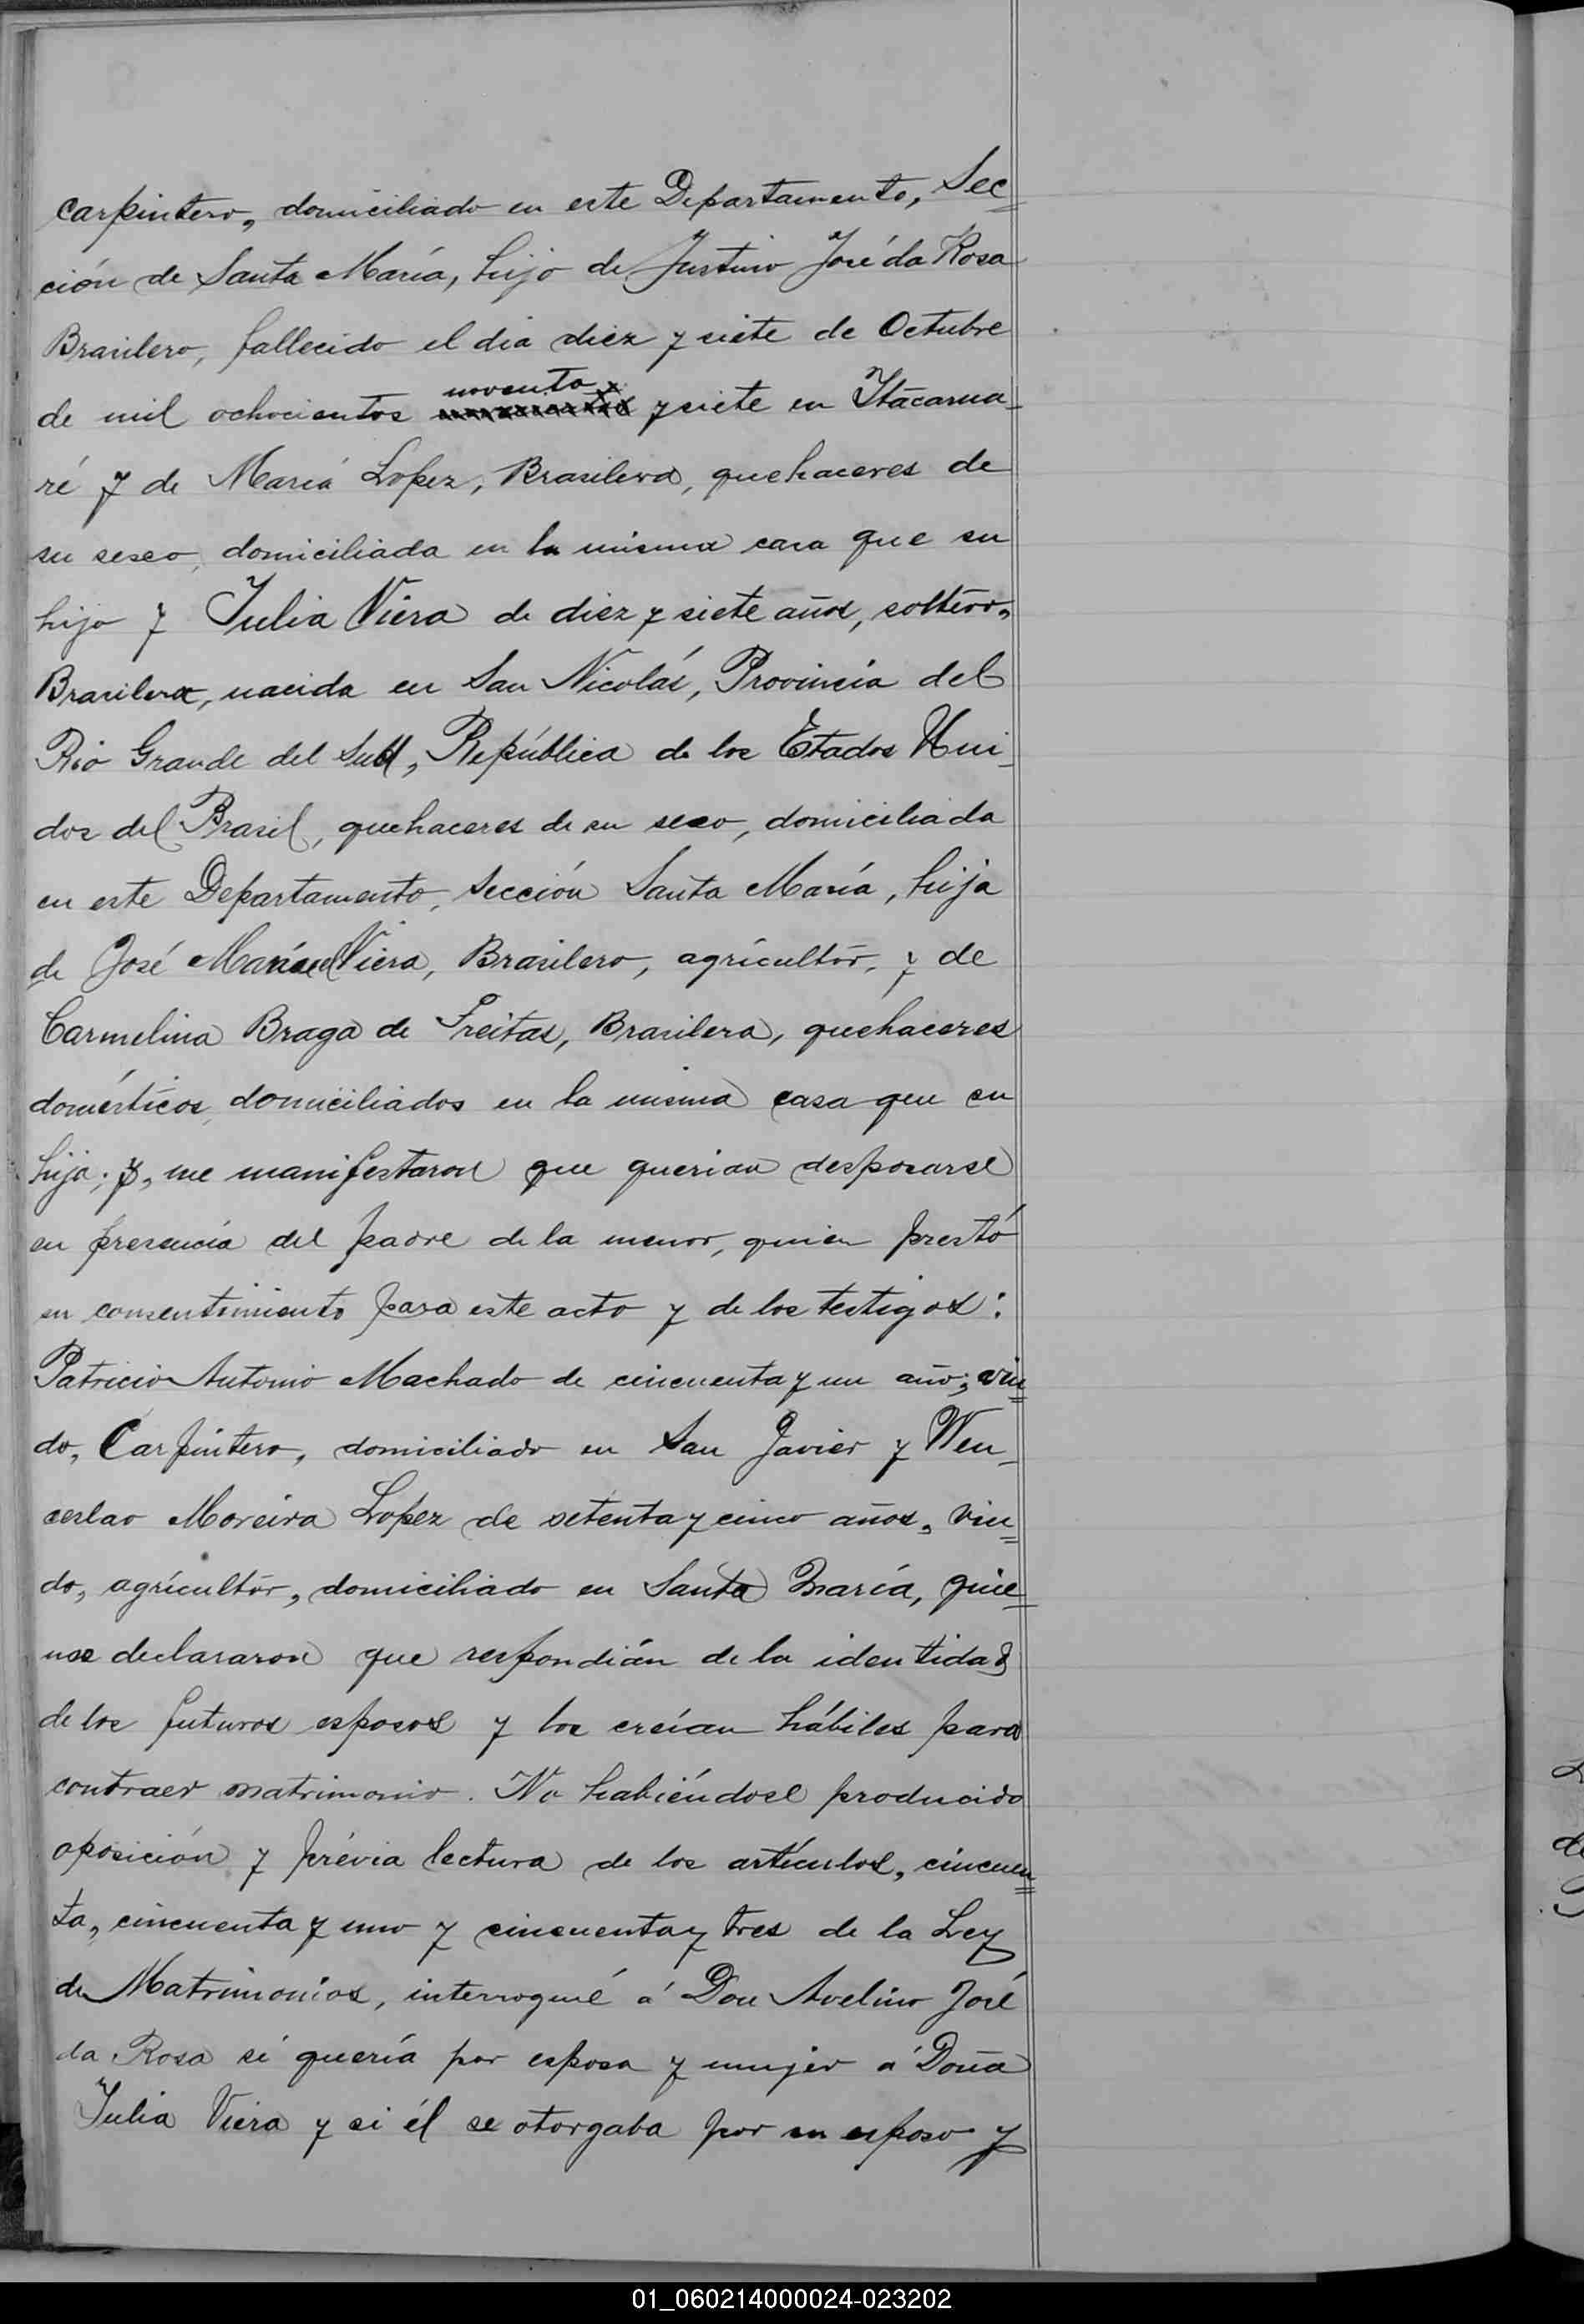 carpintero, domiciliado en este Departamento, Sec=
ción de Santa María, hijo de Justino José da Rosa
Brasilero, fallecido el dia diez y siete de Octubre
noventa
de mil ochocientos y siete en Itacarua-
ré y de María Lopez, Brasilera, quehaceres de
su sexo, domiciliada en la misma casa que su
hijo y Julia Viera de diez y siete años, soltera,
Brasilera, nacida en San Nicolás, Provincia del
Rio Grande del Sud, República de los Estados Uni-
dos del Brasil, quehaceres de su sexo, domiciliada
en este Departamento, Sección Santa María, hija
de José Viera, Brasilero, agricultor, y de
Carmelina Braga de Freitas, Brasilera, quehaceres
domésticos, domiciliados en la misma casa que su
hija; y, me manifestaron que querian desposarse
en presencia del padre de la menor, quien prestó
su consentimiento para este acto y de los testigos:
Patricio Antonio Machado de cincuenta y un año, viu=
do, Carpintero, domiciliado en San Javier y Wen-
ceslao Moreira Lopez de setenta y cinco años, viu=
do, agricultor, domiciliado en Santa María, quie=
nes declararon que respondián de la identidad
de los futuros esposos y los creían hábiles para
contraer matrimonio. No habiéndose producido
oposición y prévia lectura de los artículos, cincuen=
ta, cincuenta y uno y cincuenta y tres de la Ley
de Matrimonios, interrogué á Don Avelino José
da Rosa si quería por esposa y mujer á Doña
Julia Viera y si él se otorgaba por su esposo y
01_060214000024-023202